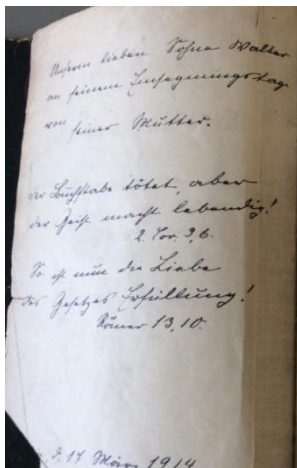 Unserem lieben Sohne Walter
an seinem Einsegnungstage
von
seiner Mutter.
der Buchstabe tötet, aber
der Geist macht lebendig!
2. Cor. 3, 6.
So ist nun die Liebe
des Gesetzes Erfüllung!
Römer 13, 10.
d. 17 März 1914